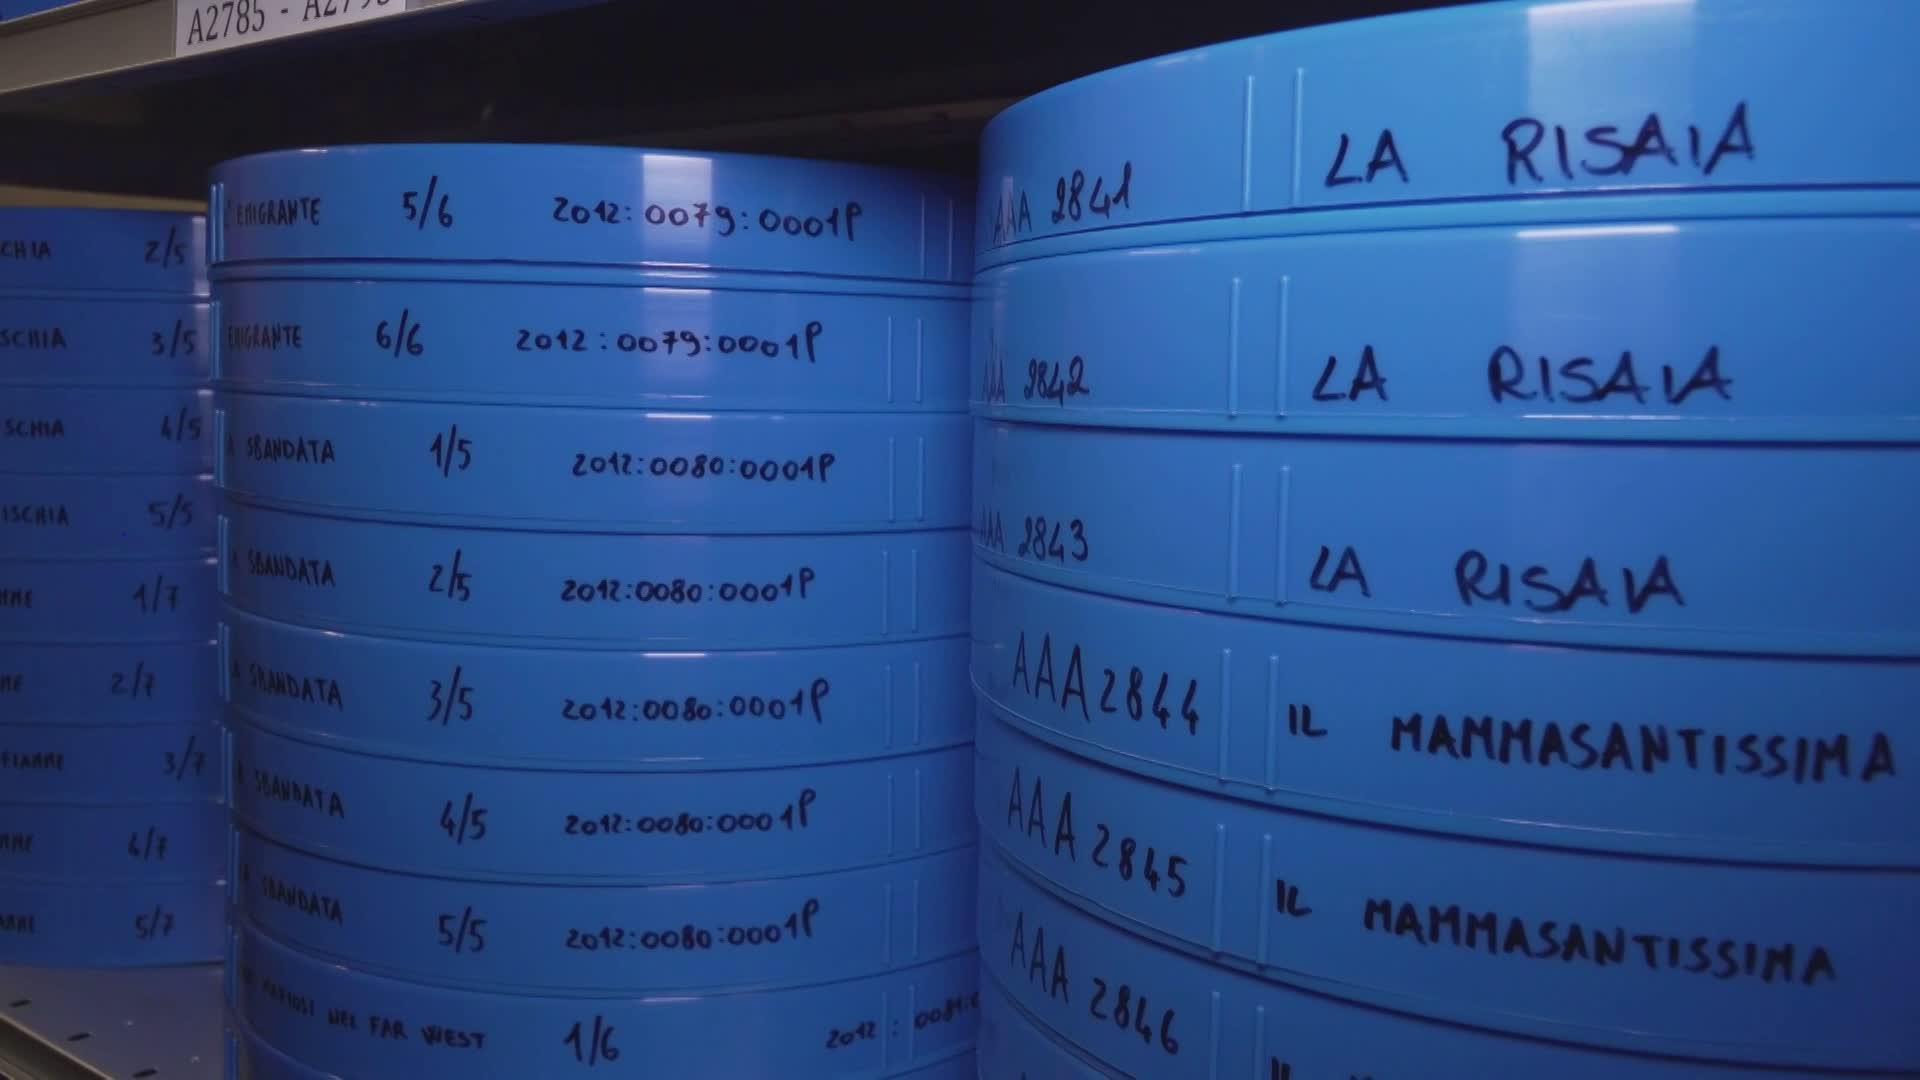 A2785 - A2795
2/5
3/5
4/5
ISCHIA 5/5
1/7
2/7
3/7
4/7
5/7
EMIGRANTE 5/6 2012:0079:0001P
EMIGRANTE 6/6 2012:0079:0001P
SBANDATA 1/5 2012:0080:0001P
SBANDATA 2/5 2012:0080:0001P
SBANDATA 3/5 2012:0080:0001P
SBANDATA 4/5 2012:0080:0001P
SBANDATA 5/5 2012:0080:0001P
NEL FAR WEST 1/6 2012:
AAA 2841 LA RISAIA
AAA 2842 LA RISAIA
AAA 2843 LA RISAIA
AAA 2844 IL MAMMASANTISSIMA
AAA 2845 IL MAMMASANTISSIMA
AAA 2846